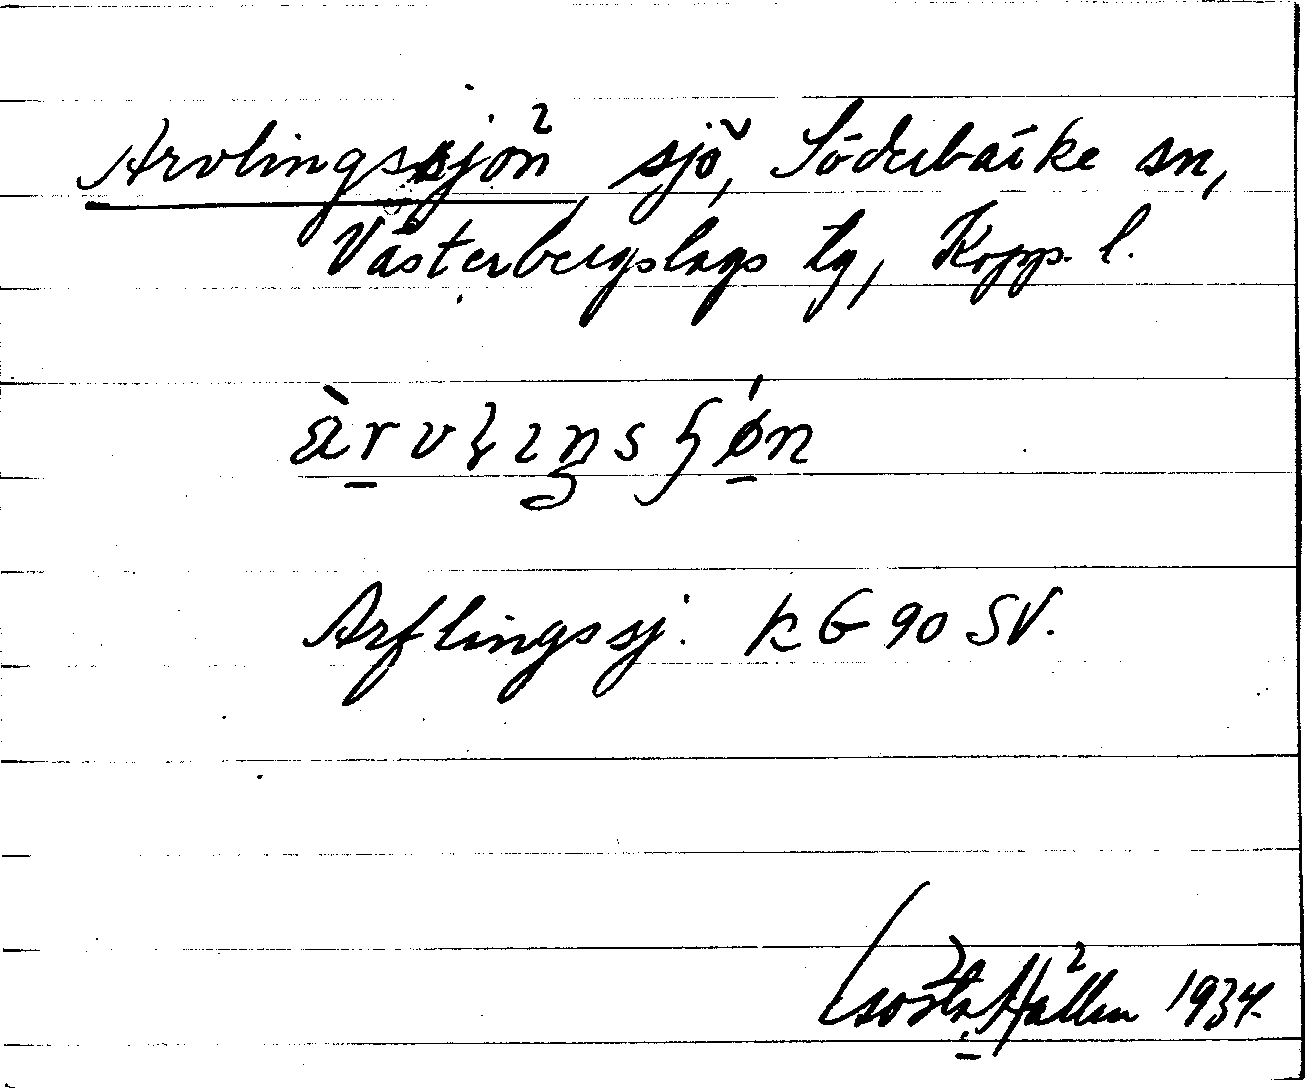 Arvlingssjön sjö, Söderbärke sn,
Västerbergslags tg, Kopp. l.
Arflingssj. KG 90 SV.
Gösta Hållen 1934.